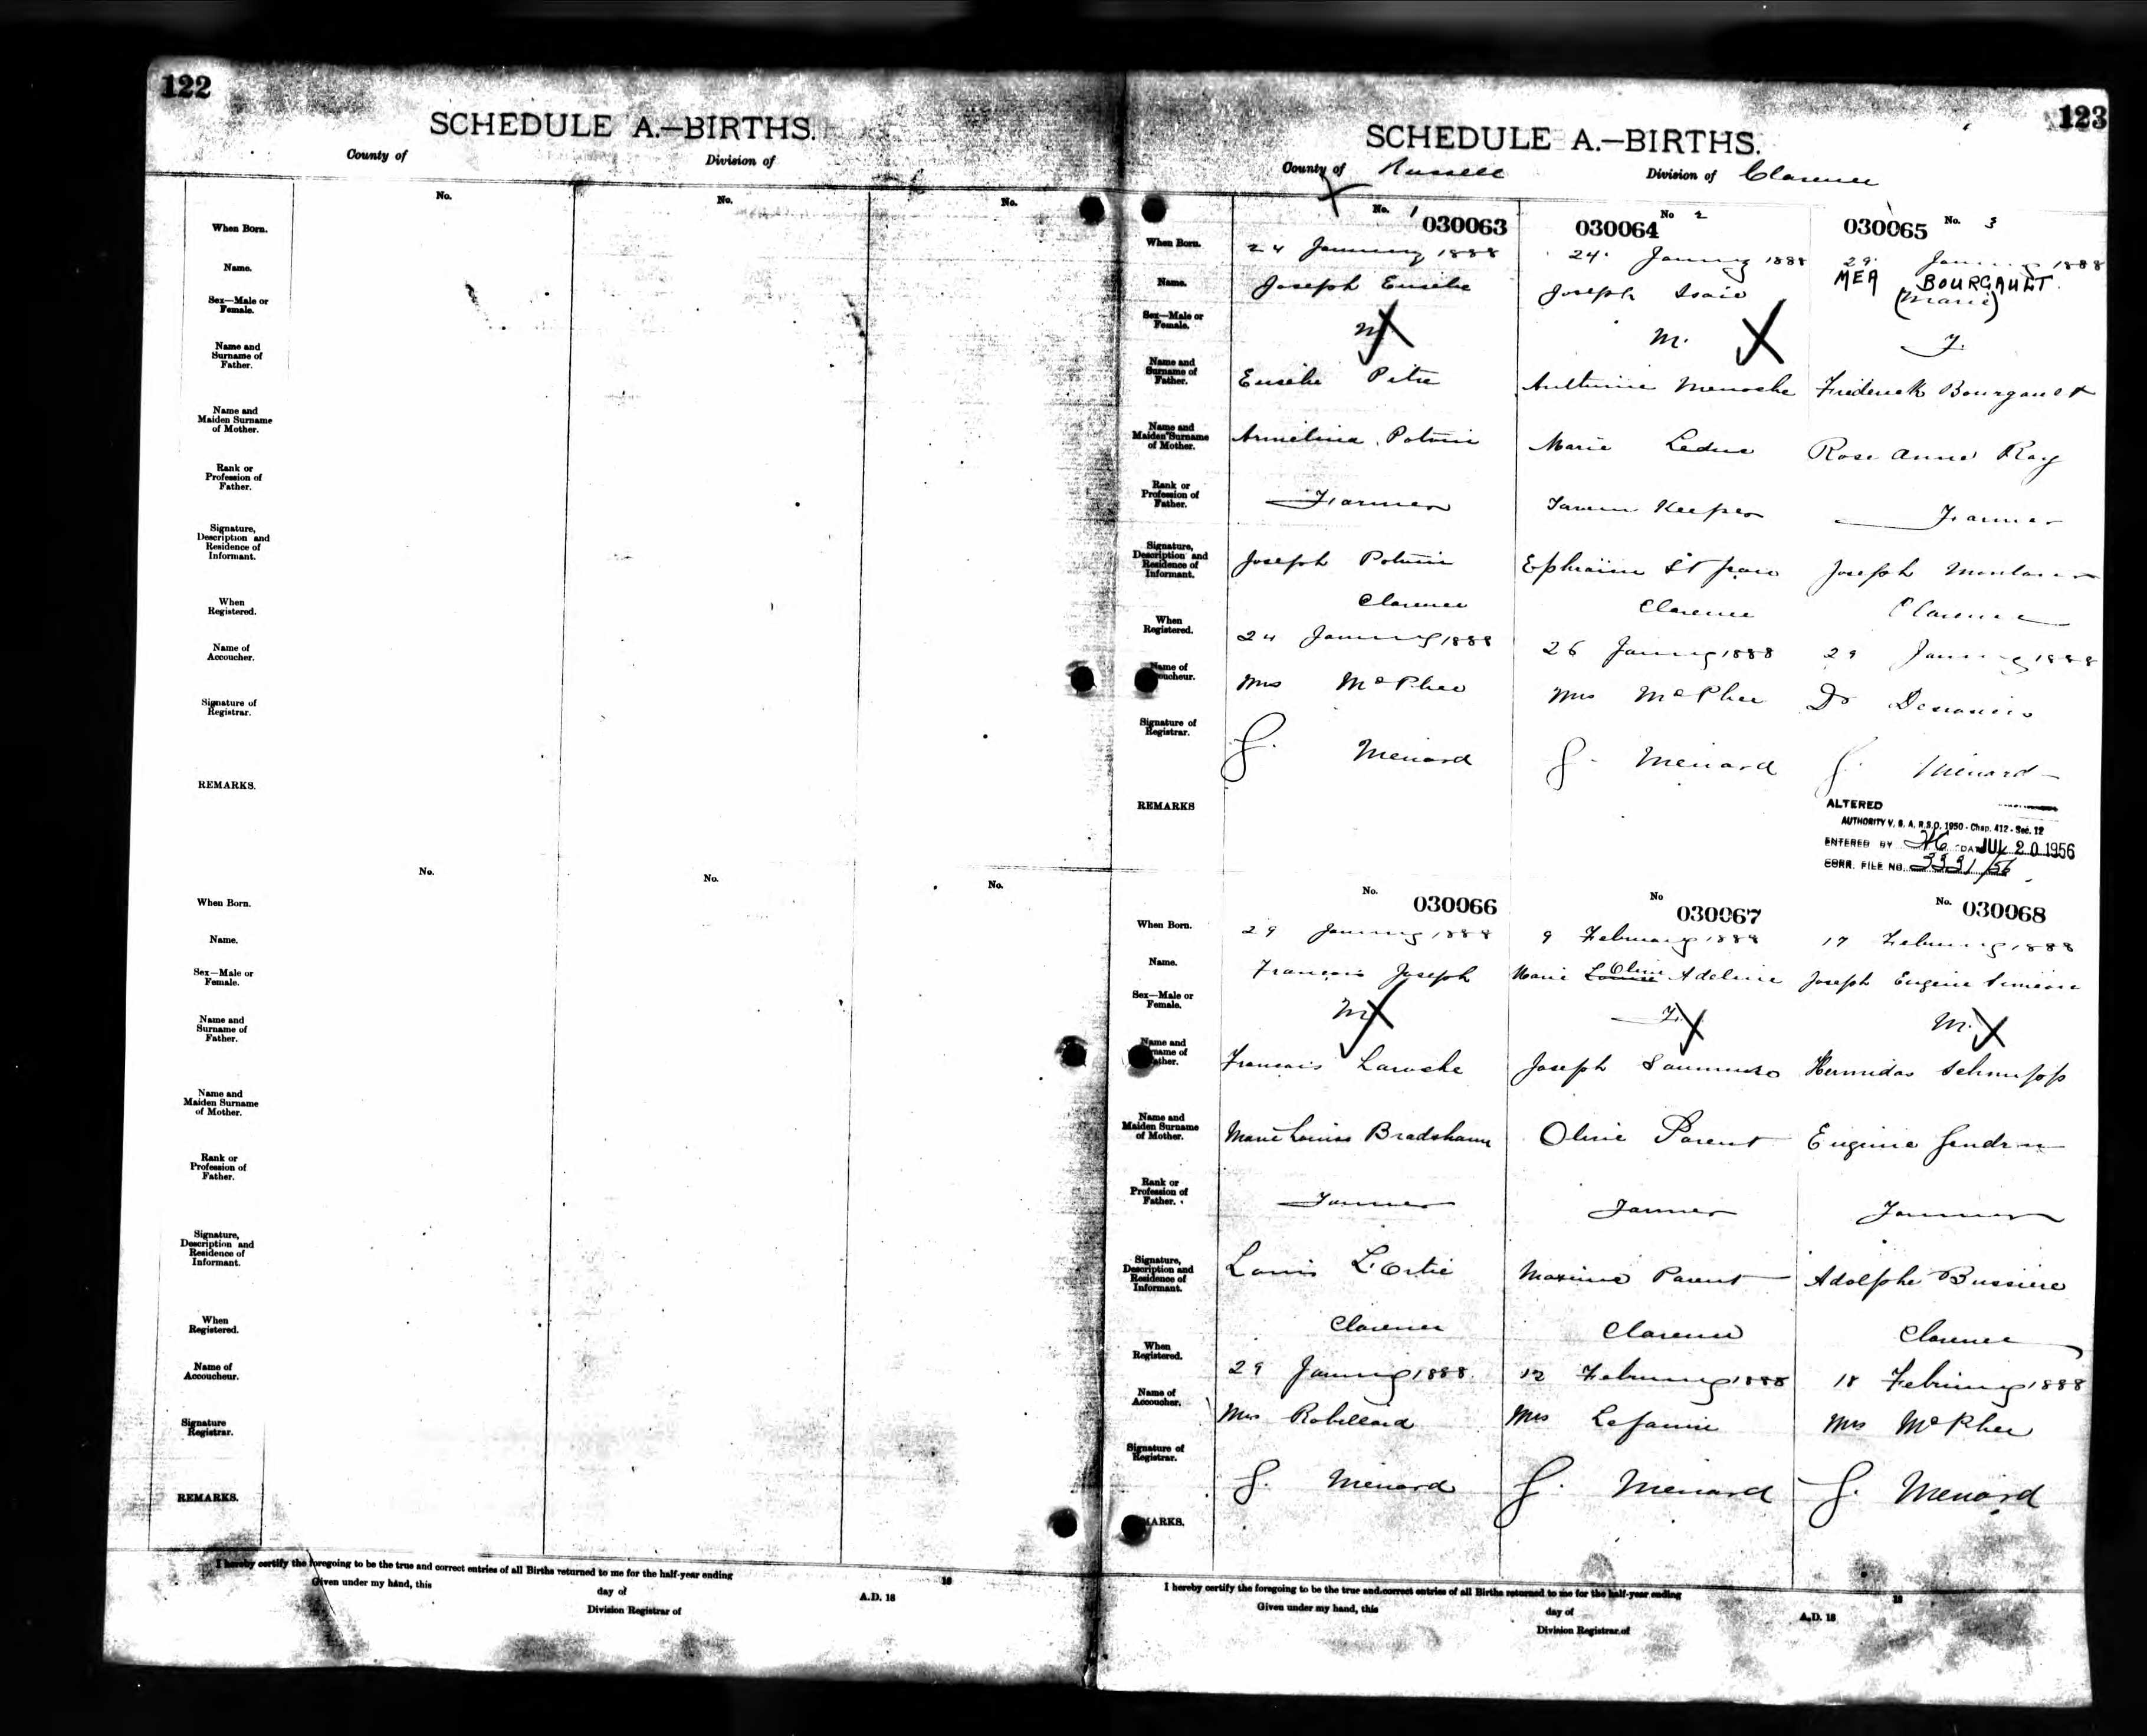 122
SCHEDULE A.—BIRTHS.
County of Division of
No. No. No.
When Born.
Name.
Sex—Male or
Female.
Name and
Surname of
Father.
Name and
Maiden Surname
of Mother.
Rank or
Profession of
Father.
Signature,
Description and
Residence of
Informant.
When
Registered.
Name of
Accoucher.
Signature of
Registrar.
REMARKS.
No. No. No.
When Born.
Name.
Sex—Male or
Female.
Name and
Surname of
Father.
Name and
Maiden Surname
of Mother.
Rank or
Profession of
Father.
Signature,
Description and
Residence of
Informant.
When
Registered.
Name of
Accoucheur.
Signature
Registrar.
REMARKS.
I hereby certify the foregoing to be the true and correct entries of all Births returned to me for the half-year ending 18
Given under my hand, this day of A.D. 18
Division Registrar of
123
SCHEDULE A.—BIRTHS.
County of Russell Division of Clarence
No. 1 030063 030064 No 2 030065 No. 3
When Born. 24 January 1888 24 January 1888 29 January 1888
Name. Joseph Eusebe Joseph Isaie MEA BOURGAULT
(Marie)
Sex—Male or
Female. M M. F.
Name and
Surname of
Father. Eusebe Pitre Menoche Frederick Bourgault
Name and
Maiden Surname
of Mother. Armelina Potvin Marie Leduc Rose Anne Roy
Rank or
Profession of
Father. Farmer Tavern Keeper Farmer
Signature,
Description and
Residence of
Informant. Joseph Potvin Ephraim St Jean Joseph
Clarence Clarence Clarence
When
Registered. 24 January 1888 26 January 1888 29 January 1888
Name of
oucheur. Mrs McPhee Mrs McPhee Dr
Signature of
Registrar. G. Menard G. Menard G. Menard
REMARKS
ALTERED
AUTHORITY V. S. A. R.S.O. 1950 - Chap. 412 - Sec. 12
ENTERED BY DATE JUL 20 1956
CORR. FILE NO. 3331/56
No. 030066 No 030067 No. 030068
When Born. 29 January 1888 9 February 1888 17 February 1888
Name. Francois Joseph Marie Louise Olive Adeline Joseph Eugene Simeon
Sex—Male or
Female. M F. M.
Name and
name of
ather. Francois Laroche Joseph Hermidas Schnupp
Name and
Maiden Surname
of Mother. Marie Louise Bradshaw Olive Parent Eugenie Gendron
Rank or
Profession of
Father. Farmer Farmer Farmer
Signature,
Description and
Residence of
Informant. Louis L'Ortie Maxime Parent Adolphe Bussiere
Clarence Clarence Clarence
When
Registered. 29 January 1888 12 February 1888 18 February 1888
Name of
Accoucher. Mrs Robillard Mrs Mrs McPhee
Signature of
Registrar. G. Menard G. Menard G. Menard
MARKS.
I hereby certify the foregoing to be the true and correct entries of all Births returned to me for the half-year ending 18
Given under my hand, this day of A.D. 18
Division Registrar of